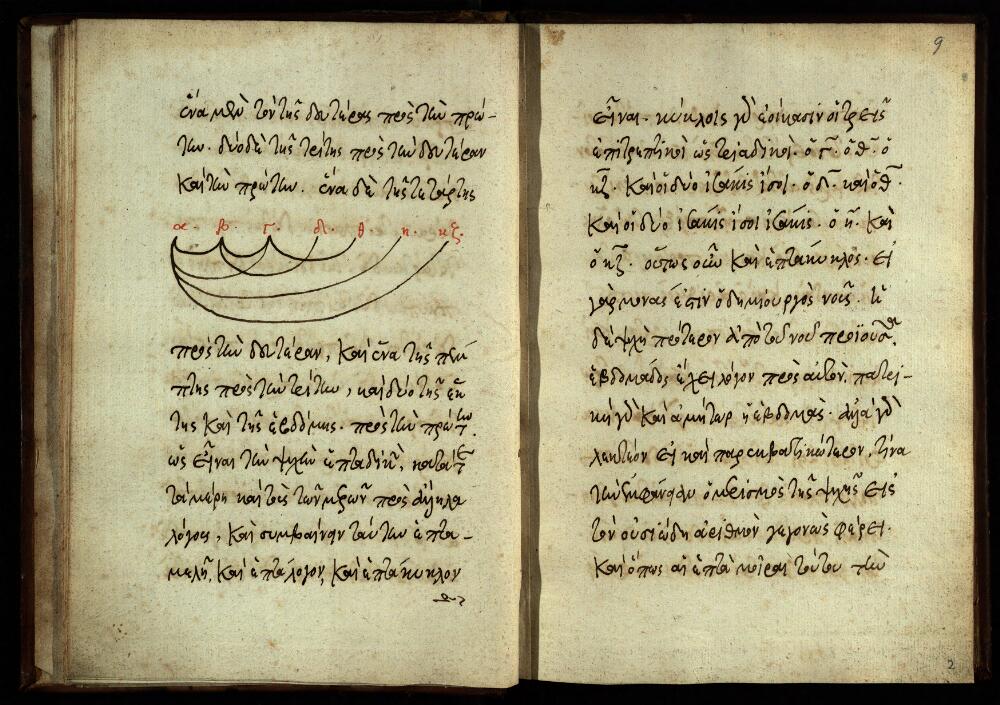 ἕνα μὲν τὸν τῆς δευτέρας πρὸς τὴν πρώ-
την. δύο δὲ τῆς τρίτης πρὸς τὴν δευτέραν
καὶ τὴν πρώτην. ἕνα δὲ τῆς τετάρτης
α. β. γ. δ. θ. η. κζ.
πρὸς τὴν δευτέραν, καὶ ἕνα τῆς πέμ
πτης πρὸς τὴν τρίτην, καὶ δύο τῆς ἕκ
της καὶ τῆς ἑβδόμης. πρὸς τὴν πρώτην.
ὡς εἶναι τὴν ψυχὴν ἑπταδικὴν, κατά τε
τὰ μέρη καὶ τοὺς τῶν μερῶν πρὸς ἄλληλα
λόγους, καὶ συμβαίνειν ταύτην ἑπτα-
μελῆ, καὶ ἑπτάλογον, καὶ ἑπτάκυκλον
9
εἶναι. κύκλοις γὰρ ἐοίκασιν οἱ τρεῖς
ἐπιτρεπτικοὶ ὡς τριαδικοὶ. ὁ γ. ὁ θ. ὁ
κζ. καὶ οἱ δύο ἰσάκις ἴσοι. ὁ δ. καὶ ὁ θ.
καὶ οἱ δύο ἰσάκις ἴσοι ἰσάκις. ὁ η. καὶ
ὁ κζ. οὕτως οὖν καὶ ἑπτάκυκλος. εἰ
γὰρ μονάς ἐστιν ὁ δημιουργὸς νοῦς. ἡ
δὲ ψυχὴ πρότερον ἀπὸ τοῦ νοῦ προϊοῦσα,
ἑβδομάδος ἔχει λόγον πρὸς αὐτόν. πατρι-
κὴ γὰρ καὶ ἀμήτωρ ἡ ἑβδομάς. ἀλλὰ γὰρ
λεκτέον εἰ καὶ παρεκβατικώτερον, τίνα
τὴν ἔμφασιν ὁ μερισμὸς τῆς ψυχῆς εἰς
τὸν οὐσιώδη ἀριθμὸν γεγονὼς φέρει.
καὶ ὅπως αἱ ἑπτὰ μοῖραι τούτου τὴν
2